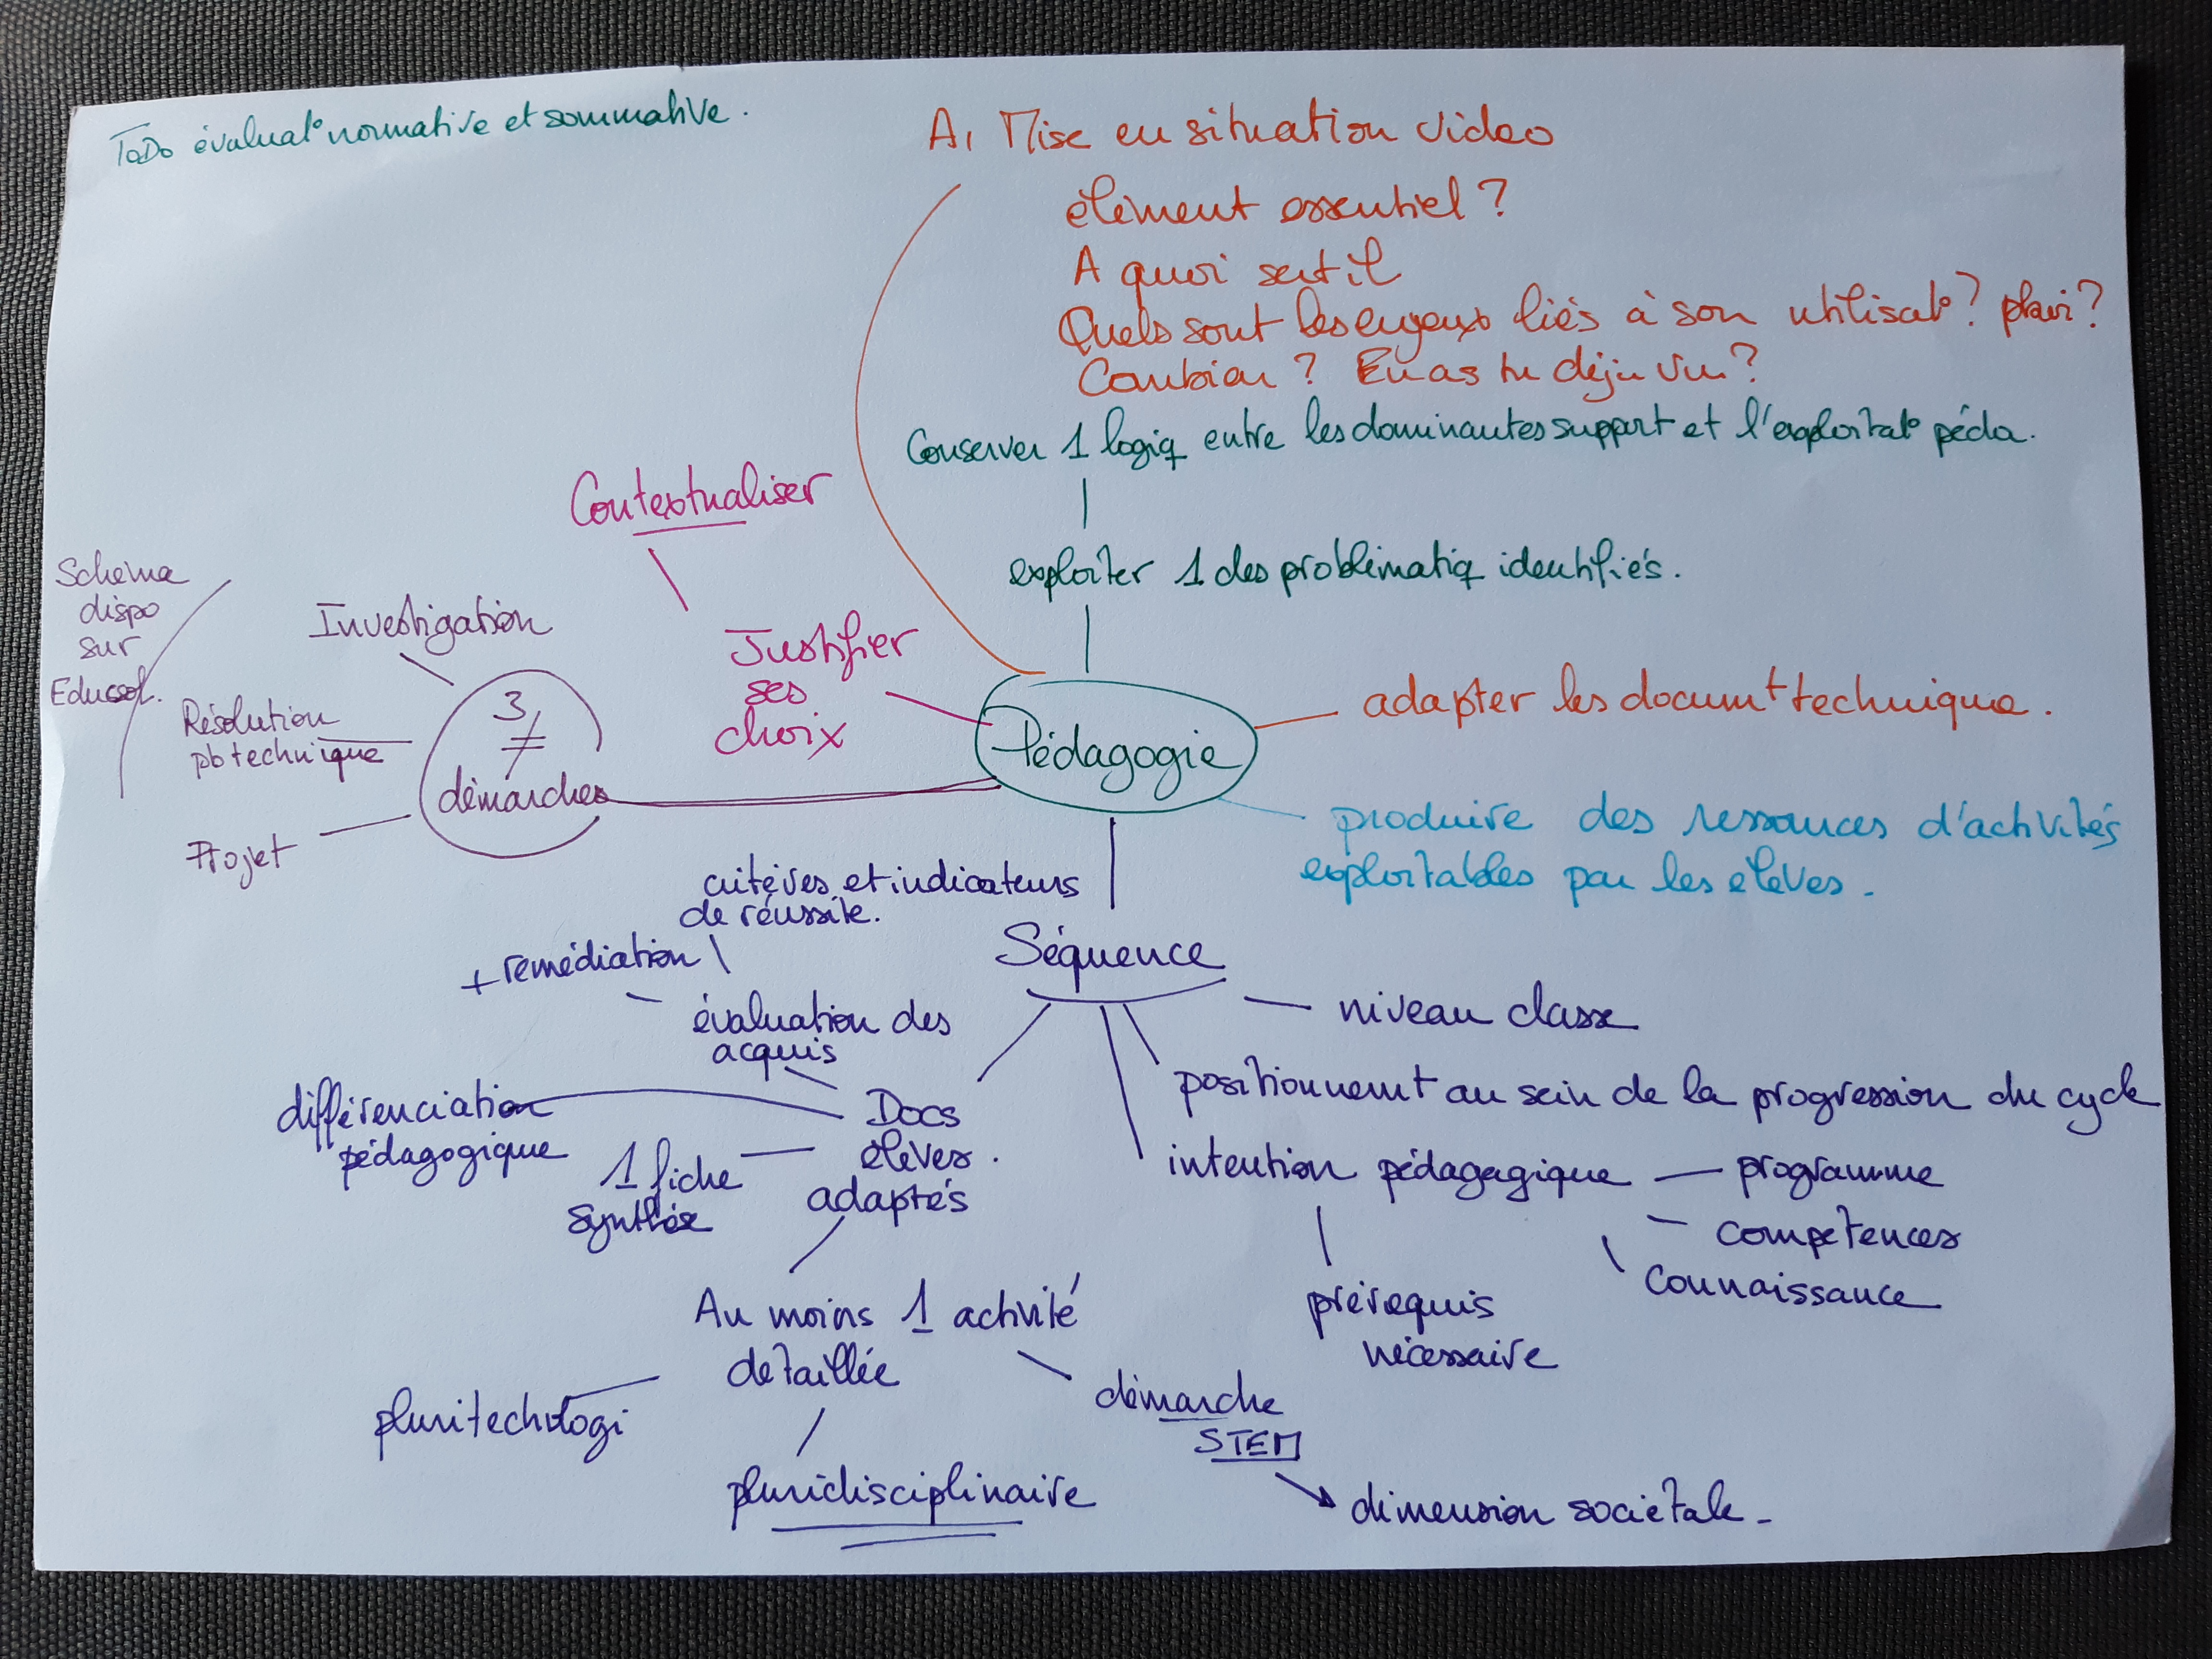 ToDo évaluat° normative et sommative.
A1 Mise en situation video
élément essentiel ?
A quoi sert il
Quels sont les enjeux liés à son utilisat° ?
Combien ? En as tu déjà vu ?
Conserver 1 logiq entre les dominantes support et l'exploitat° péda.
exploiter 1 des problématiq identifiés.
Contextualiser
Justifier
ses
choix
Schéma
dispo
sur
Eduscol.
Investigation
Résolution
pb technique
Projet
3
≠
démarches
Pédagogie
adapter les documt technique.
produire des ressources d'activités
exploitables par les élèves.
critères et indicateurs
de réussite.
+ remédiation
évaluation des
acquis
Séquence
niveau classe
positionnemt au sein de la progression du cycle
intention pédagogique
programme
compétences
connaissance
prérequis
nécessaire
différenciation
pédagogique
1 fiche
synthèse
Docs
élèves.
adaptés
Au moins 1 activité
détaillée
pluritechologi
pluridisciplinaire
démarche
STEM
dimension sociétale